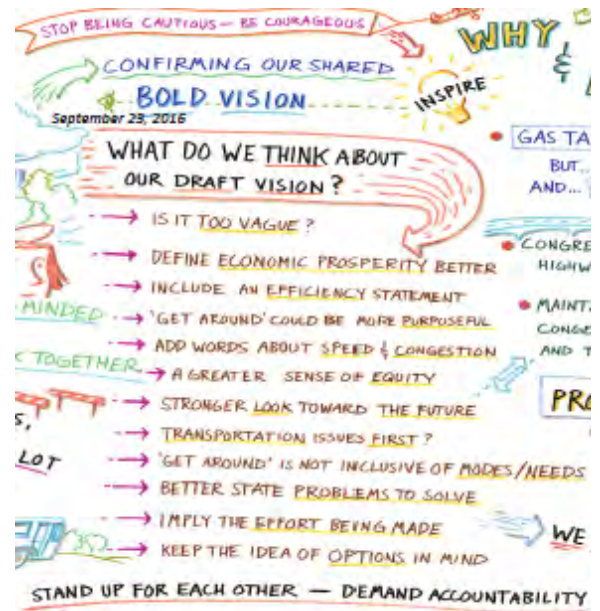 STOP BEING CAUTIOUS — BE COURAGEOUS
WHY
&
CONFIRMING OUR SHARED
BOLD VISION
INSPIRE
September 23, 2016
WHAT DO WE THINK ABOUT
OUR DRAFT VISION?
GAS TA
BUT...
AND...
IS IT TOO VAGUE?
DEFINE ECONOMIC PROSPERITY BETTER
INCLUDE AN EFFICIENCY STATEMENT
'GET AROUND' COULD BE MORE PURPOSEFUL
ADD WORDS ABOUT SPEED & CONGESTION
A GREATER SENSE OF EQUITY
STRONGER LOOK TOWARD THE FUTURE
TRANSPORTATION ISSUES FIRST?
'GET AROUND' IS NOT INCLUSIVE OF MODES/NEEDS
BETTER STATE PROBLEMS TO SOLVE
IMPLY THE EFFORT BEING MADE
KEEP THE IDEA OF OPTIONS IN MIND
CONGRE
HIGHW
MAINT
CONGE
AND T
PRO
WE
MINDED
TOGETHER
S,
LOT
STAND UP FOR EACH OTHER — DEMAND ACCOUNTABILITY